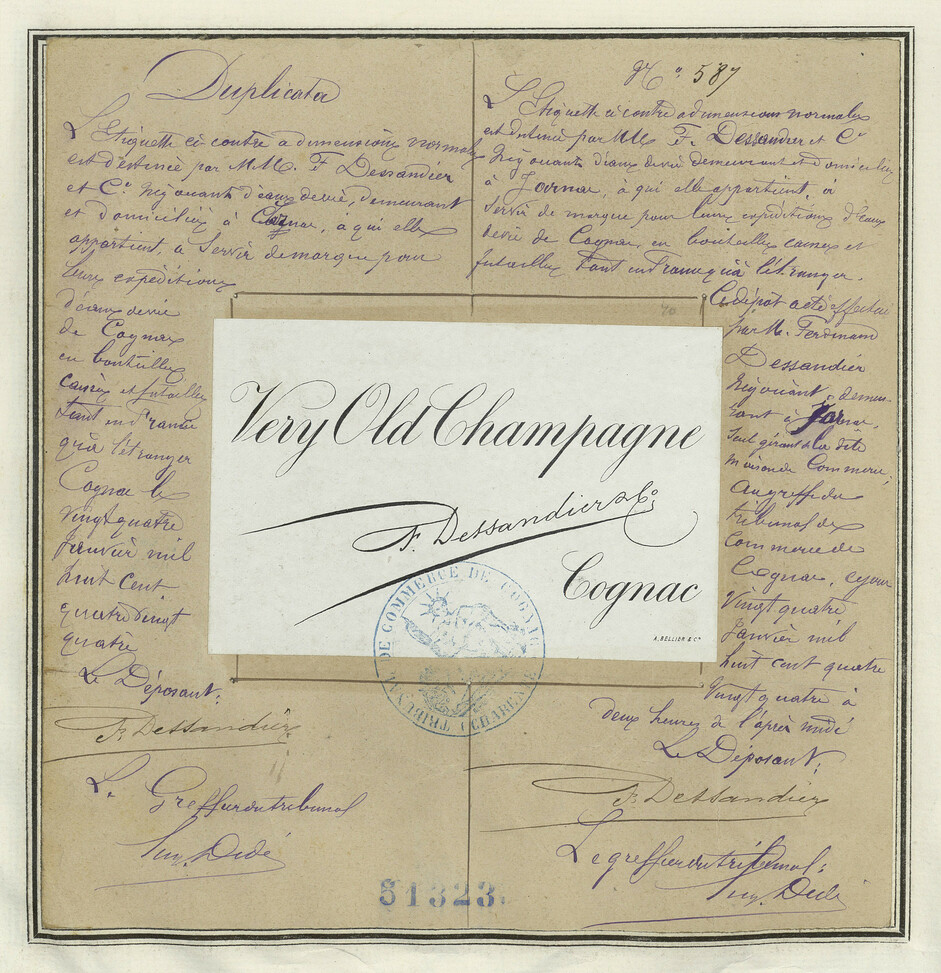 Duplicata
L'Etiquette ci contre a dimensions normales
est destinée par MM. F. Dessandier
et Cie. Négociants d'eaux de vie, demeurant
et domiciliés à Jarnac, à qui elle
appartient, a Servir de marque pour
leurs expéditions
d'eaux de vie
de Cognac
en bouteilles
caisses et futailles
tant en France
qu'à l'étranger
Cognac le
vingt quatre
Janvier mil
huit cent
quatre vingt
quatre
Le Déposant:
F. Dessandier
Le Greffier du tribunal
Didé
No. 587
L'Etiquette ci contre a dimensions normales
est destinée par MM. F. Dessandier et Ce
Négociants d'eaux de vie demeurant et domiciliés
à Jarnac, à qui elle appartient, a
servir de marque pour leurs expéditions d'Eaux
de vie de Cognac en bouteilles caisses et
futailles tant en France qu'à l'étranger.
Ce dépôt a été effectué
par M. Ferdinand
Dessandier
Négociant, demeu-
rant à Jarnac,
seul gérant de la dite
maison de Commerce,
au greffe du
tribunal de
Commerce de
Cognac, ce jour
vingt quatre
Janvier mil
huit cent quatre
vingt quatre à
deux heures de l'après midi
Le Déposant:
F. Dessandier
Le greffier du tribunal:
Didé
70
Very Old Champagne
F. Dessandier & Co.
Cognac
A. BELLIOR & Cie
TRIBUNAL DE COMMERCE DE COGNAC
(CHARENTE)
51323